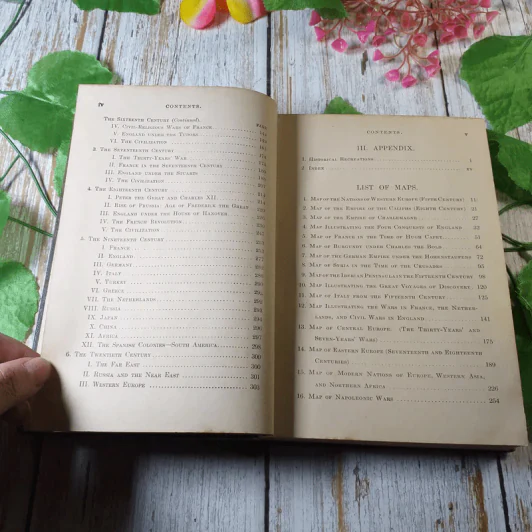 IV
CONTENTS.
THE SIXTEENTH CENTURY (Continued).
IV. CIVIL-RELIGIOUS WARS OF FRANCE
V. ENGLAND UNDER THE TUDORS
VI. THE CIVILIZATION
3. THE SEVENTEENTH CENTURY
I. THE THIRTY-YEARS' WAR
II. FRANCE IN THE SEVENTEENTH CENTURY
III. ENGLAND UNDER THE STUARTS
IV. THE CIVILIZATION
4. THE EIGHTEENTH CENTURY
I. PETER THE GREAT AND CHARLES XII.
II. RISE OF PRUSSIA: AGE OF FREDERICK THE GREAT
III. ENGLAND UNDER THE HOUSE OF HANOVER
IV. THE FRENCH REVOLUTION
V. THE CIVILIZATION
5. THE NINETEENTH CENTURY
I. FRANCE
II. ENGLAND
III. GERMANY
IV. ITALY
V. TURKEY
VI. GREECE
VII. THE NETHERLANDS
VIII. RUSSIA
IX. JAPAN
X. CHINA
XI. AFRICA 297
XII. THE SPANISH COLONIES—SOUTH AMERICA 298
6. THE TWENTIETH CENTURY 300
I. THE FAR EAST 300
II. RUSSIA AND THE NEAR EAST 301
III. WESTERN EUROPE 303
CONTENTS. V
III. APPENDIX.
I. HISTORICAL RECREATIONS I
II. INDEX
LIST OF MAPS.
1. MAP OF THE NATIONS OF WESTERN EUROPE (FIFTH CENTURY) 11
2. MAP OF THE EMPIRE OF THE CALIPHS (EIGHTH CENTURY) 21
3. MAP OF THE EMPIRE OF CHARLEMAGNE 27
4. MAP ILLUSTRATING THE FOUR CONQUESTS OF ENGLAND 32
5. MAP OF FRANCE IN THE TIME OF HUGH CAPET
6. MAP OF BURGUNDY UNDER CHARLES THE BOLD 64
7. MAP OF THE GERMAN EMPIRE UNDER THE HOHENSTAUFENS 72
8. MAP OF SYRIA IN THE TIME OF THE CRUSADES
9. MAP OF THE IBERIAN PENINSULA IN THE FIFTEENTH CENTURY 98
10. MAP ILLUSTRATING THE GREAT VOYAGES OF DISCOVERY 120
11. MAP OF ITALY FROM THE FIFTEENTH CENTURY 125
12. MAP ILLUSTRATING THE WARS IN FRANCE, THE NETHER-
LANDS, AND CIVIL WARS IN ENGLAND 141
13. MAP OF CENTRAL EUROPE. (THE THIRTY-YEARS' AND
SEVEN-YEARS' WARS) 175
14. MAP OF EASTERN EUROPE (SEVENTEENTH AND EIGHTEENTH
CENTURIES) 189
15. MAP OF MODERN NATIONS OF EUROPE, WESTERN ASIA,
AND NORTHERN AFRICA 226
16. MAP OF NAPOLEONIC WARS 254